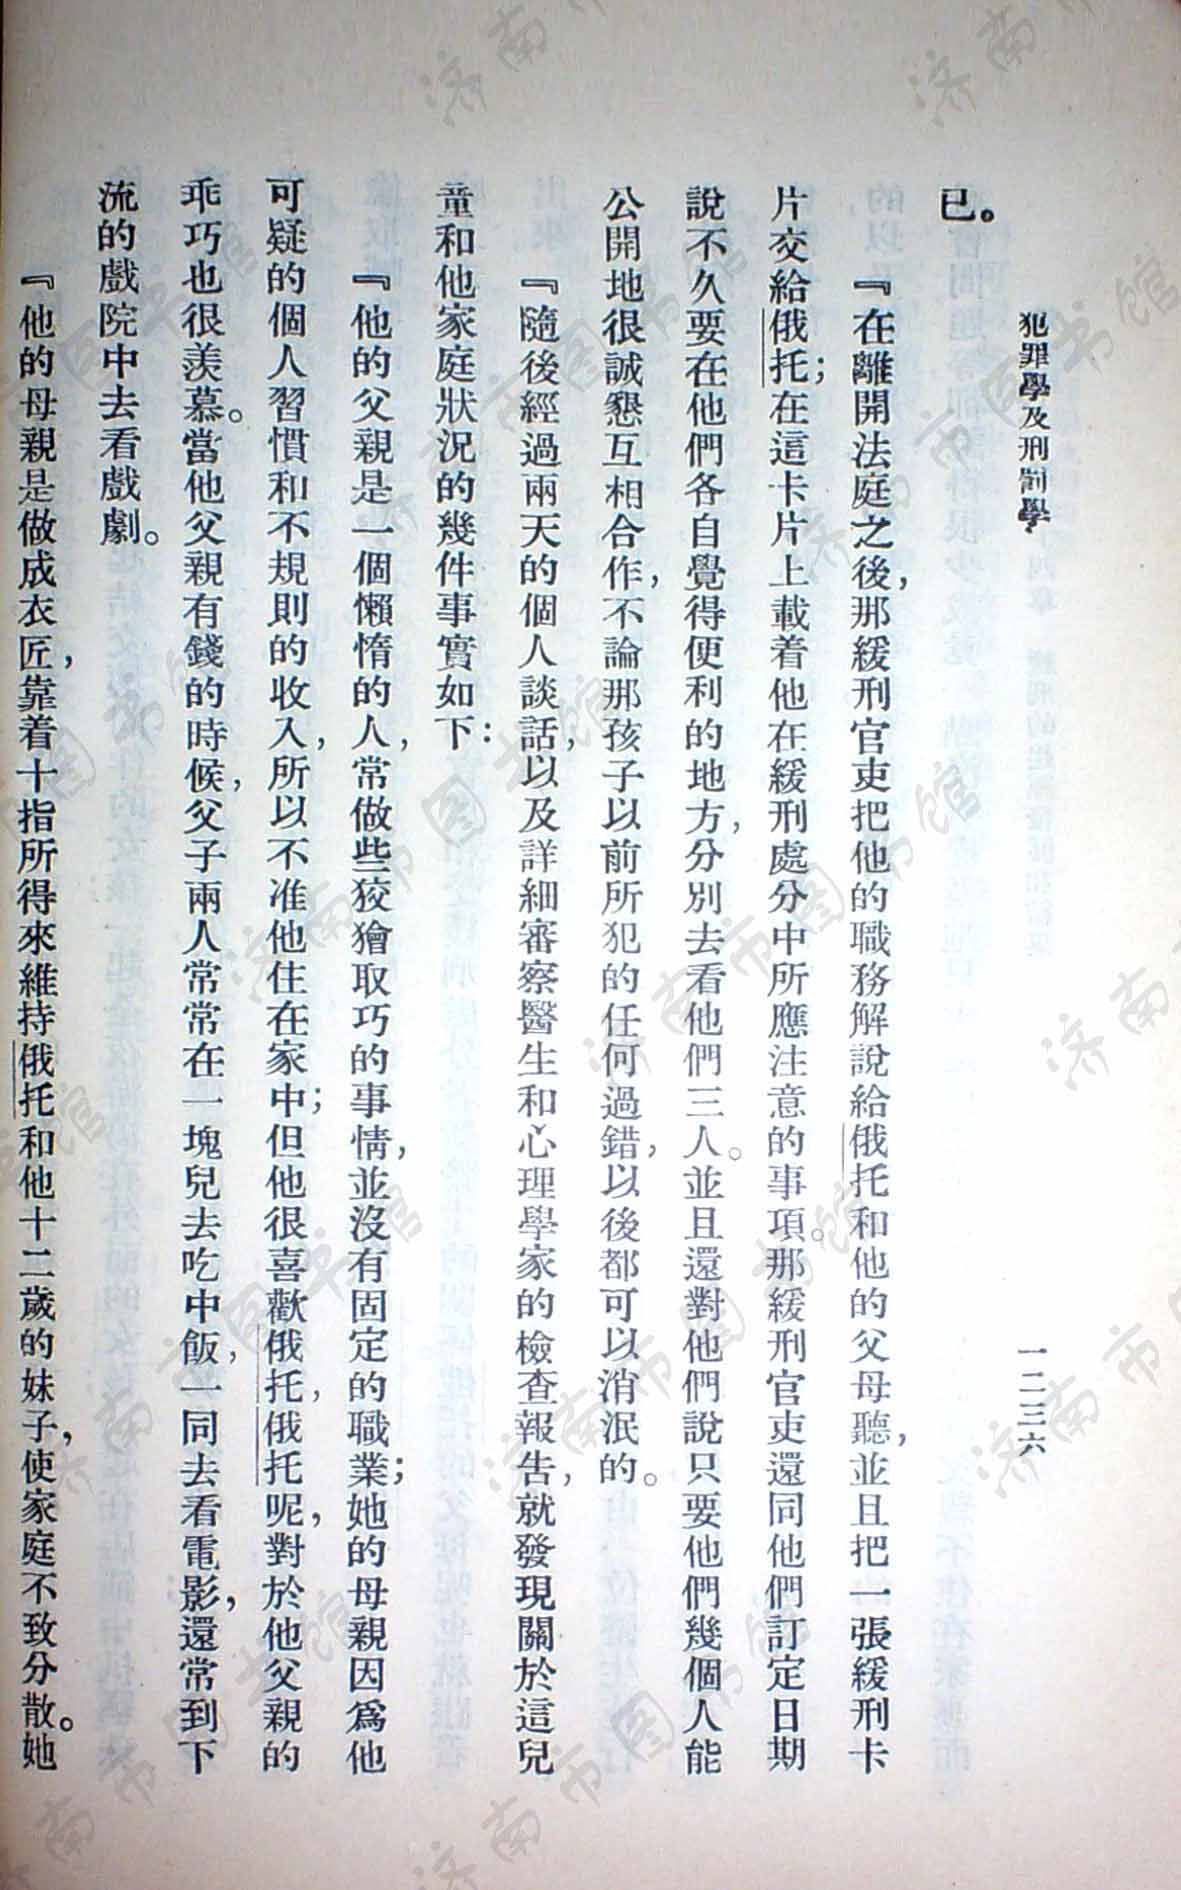 犯罪學及刑罰學
一二三六
已。
『在離開法庭之後，那緩刑官吏把他的職務解說給俄托和他的父母聽，並且把一張緩刑卡
片交給俄托；在這卡片上載着他在緩刑處分中所應注意的事項。那緩刑官吏還同他們訂定日期
說不久要在他們各自覺得便利的地方，分別去看他們三人。並且還對他們說只要他們幾個人能
公開地很誠懇互相合作，不論那孩子以前所犯的任何過錯，以後都可以消泯的。
『隨後經過兩天的個人談話，以及詳細審察醫生和心理學家的檢查報告，就發現關於這兒
童和他家庭狀況的幾件事實如下：
『他的父親是一個懶惰的人，常做些狡獪取巧的事情，並沒有固定的職業；她的母親因爲他
可疑的個人習慣和不規則的收入，所以不准他住在家中；但他很喜歡俄托，俄托呢，對於他父親的
乖巧也很羨慕。當他父親有錢的時候，父子兩人常常在一塊兒去吃中飯，一同去看電影，還常到下
流的戲院中去看戲劇。
『他的母親是做成衣匠，靠着十指所得來維持俄托和他十二歲的妹子，使家庭不致分散。她
濟南市图书馆